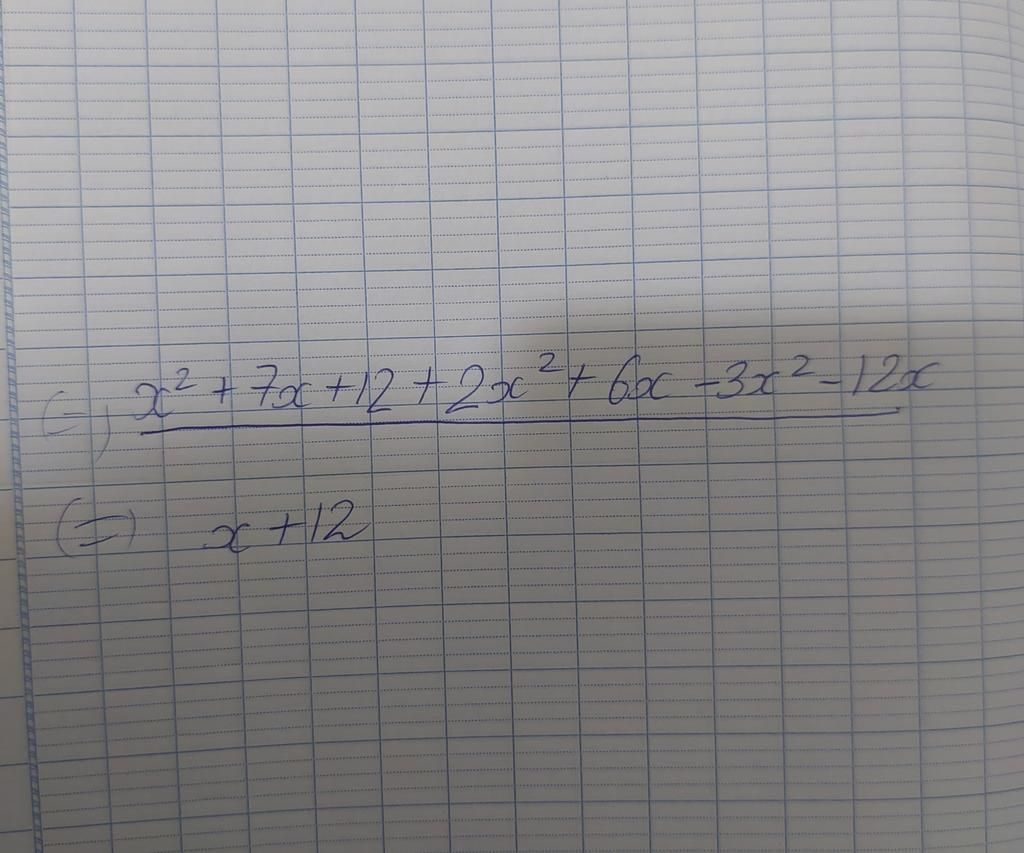 (=) x² + 7x + 12 + 2x² + 6x - 3x² - 12x
(=) x + 12